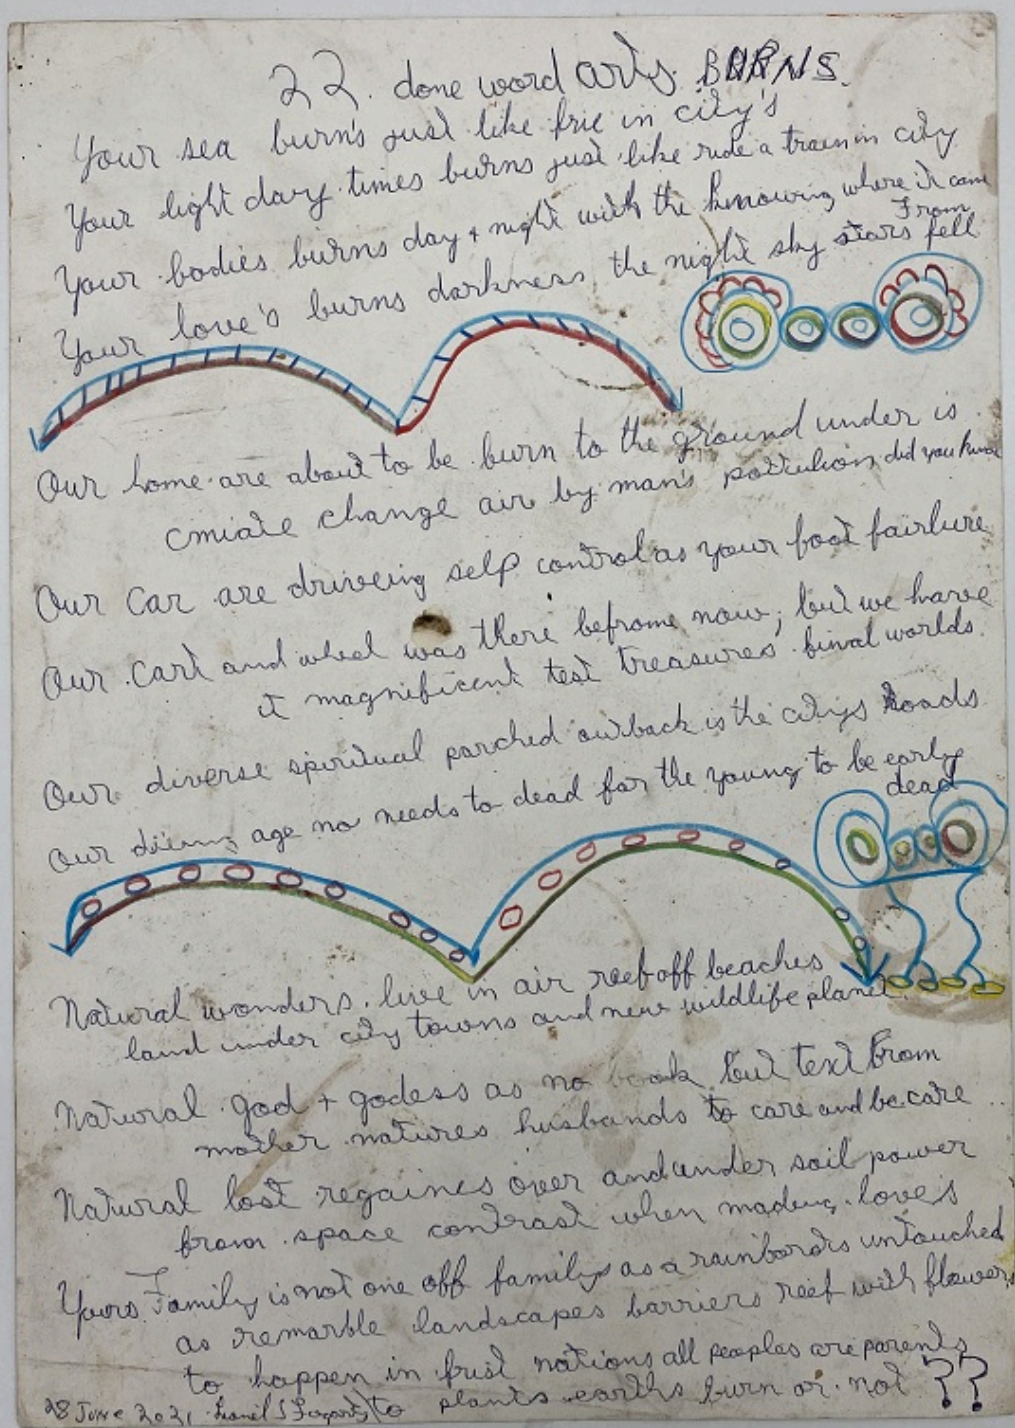 22. done word arts. BURNS.
Your sea burn's just like frie in city's
Your light day times burns just like ride a train in city
Your bodies burns day + night with the knowing where it came
From
Your love's burns darkness the night sky stars fell
Our home are about to be burn to the ground under is
cmiate change air by man's pollution did you know
Our Car are driveing self control as your foot fairlure
Our Cart and wheel was there beframe now; but we have
it magnificent test treasures final worlds.
Our diverse spiritual parched outback is the citys Roads
Our age no needs to dead for the young to be early
dead
Natural wonders. live in air reef off beaches
land under city towns and new wildlife planet.
Natural god + godess as no book but text from
mother natures husbands to care and be care ..
Natural lost regaines over and under soil power
from space contrast when madeing loves
Yours Family is not one off family as a untouched
as remarble landscapes barriers reef with flowers
to happen in frist nations all peoples are parents
to plants earths burn or not ??
28 June 2021 Lionel G Fogarty